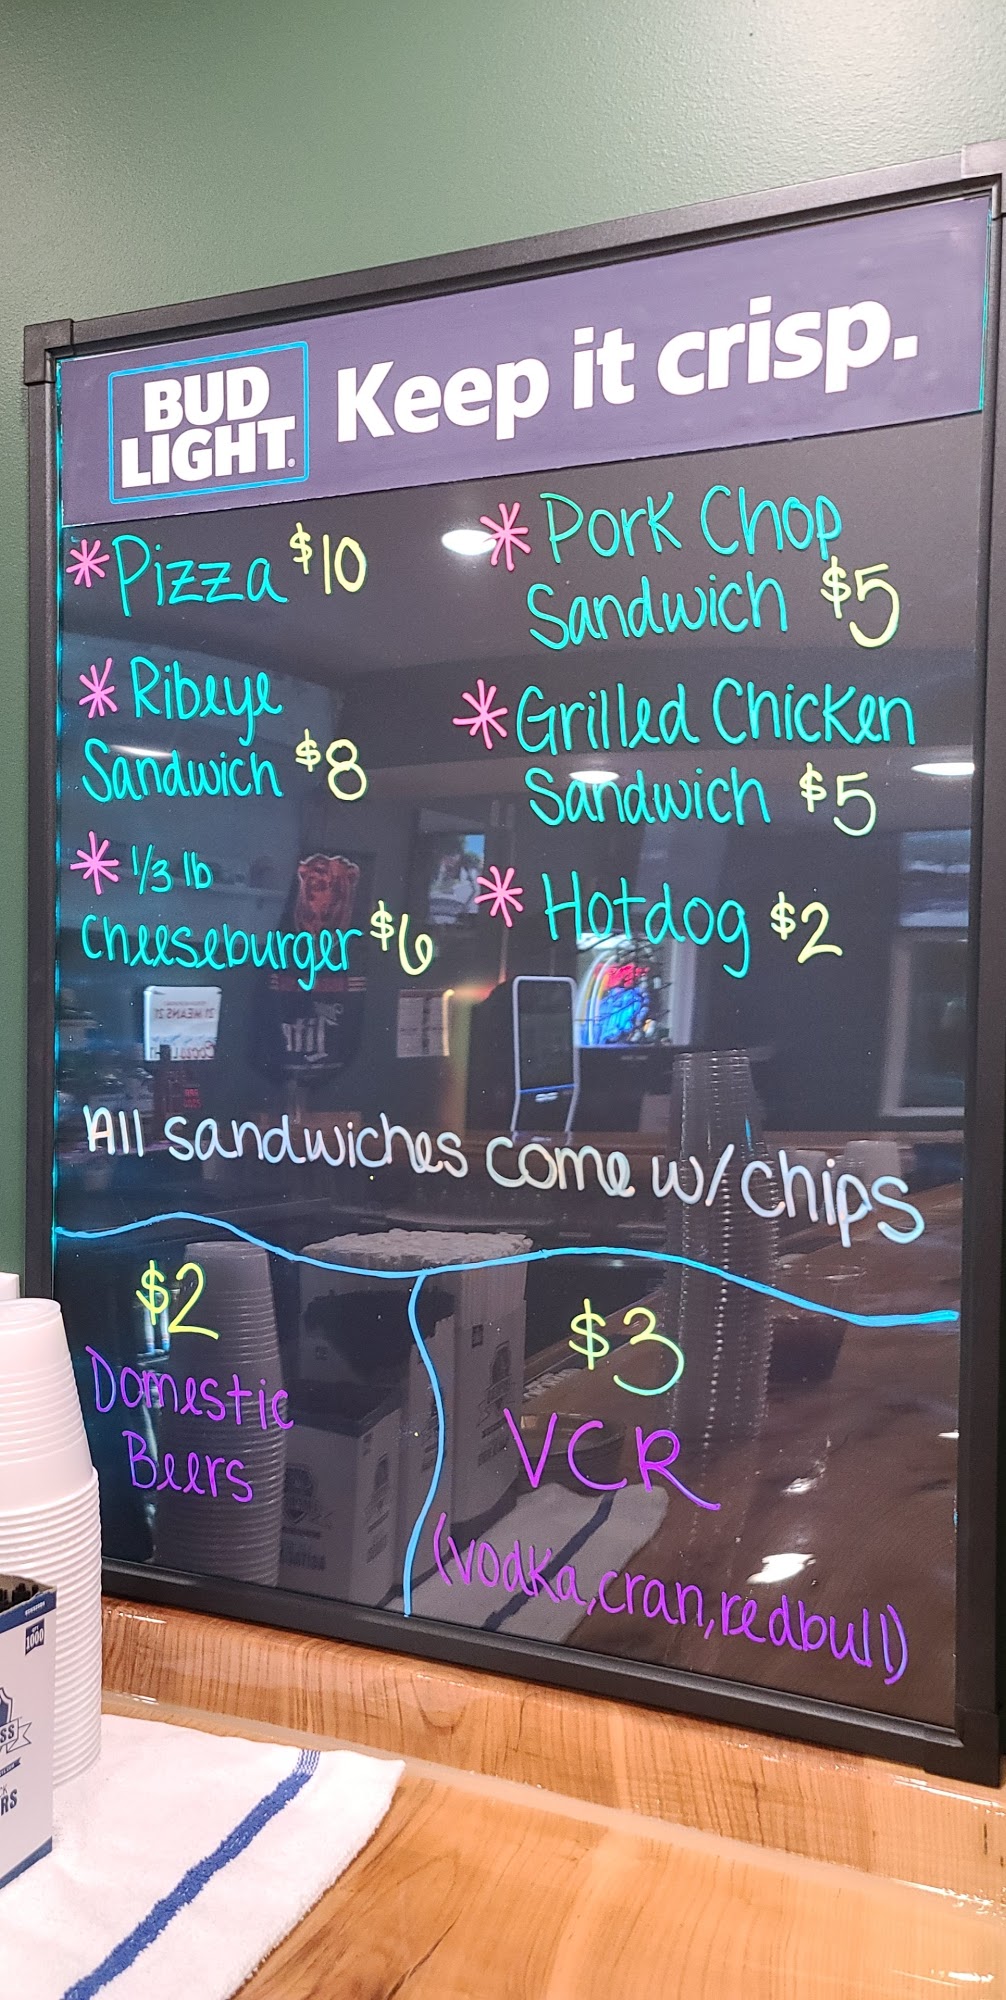 BUD
LIGHT.
Keep it crisp.
* Pizza $10
* Ribeye
Sandwich $8
* 1/3 lb
Cheeseburger $6
* Pork Chop
Sandwich $5
* Grilled Chicken
Sandwich $5
* Hotdog $2
All sandwiches come w/ chips
$2
Domestic
Beers
$3
VCR
(vodka, cran, redbull)
1000
SS
RS